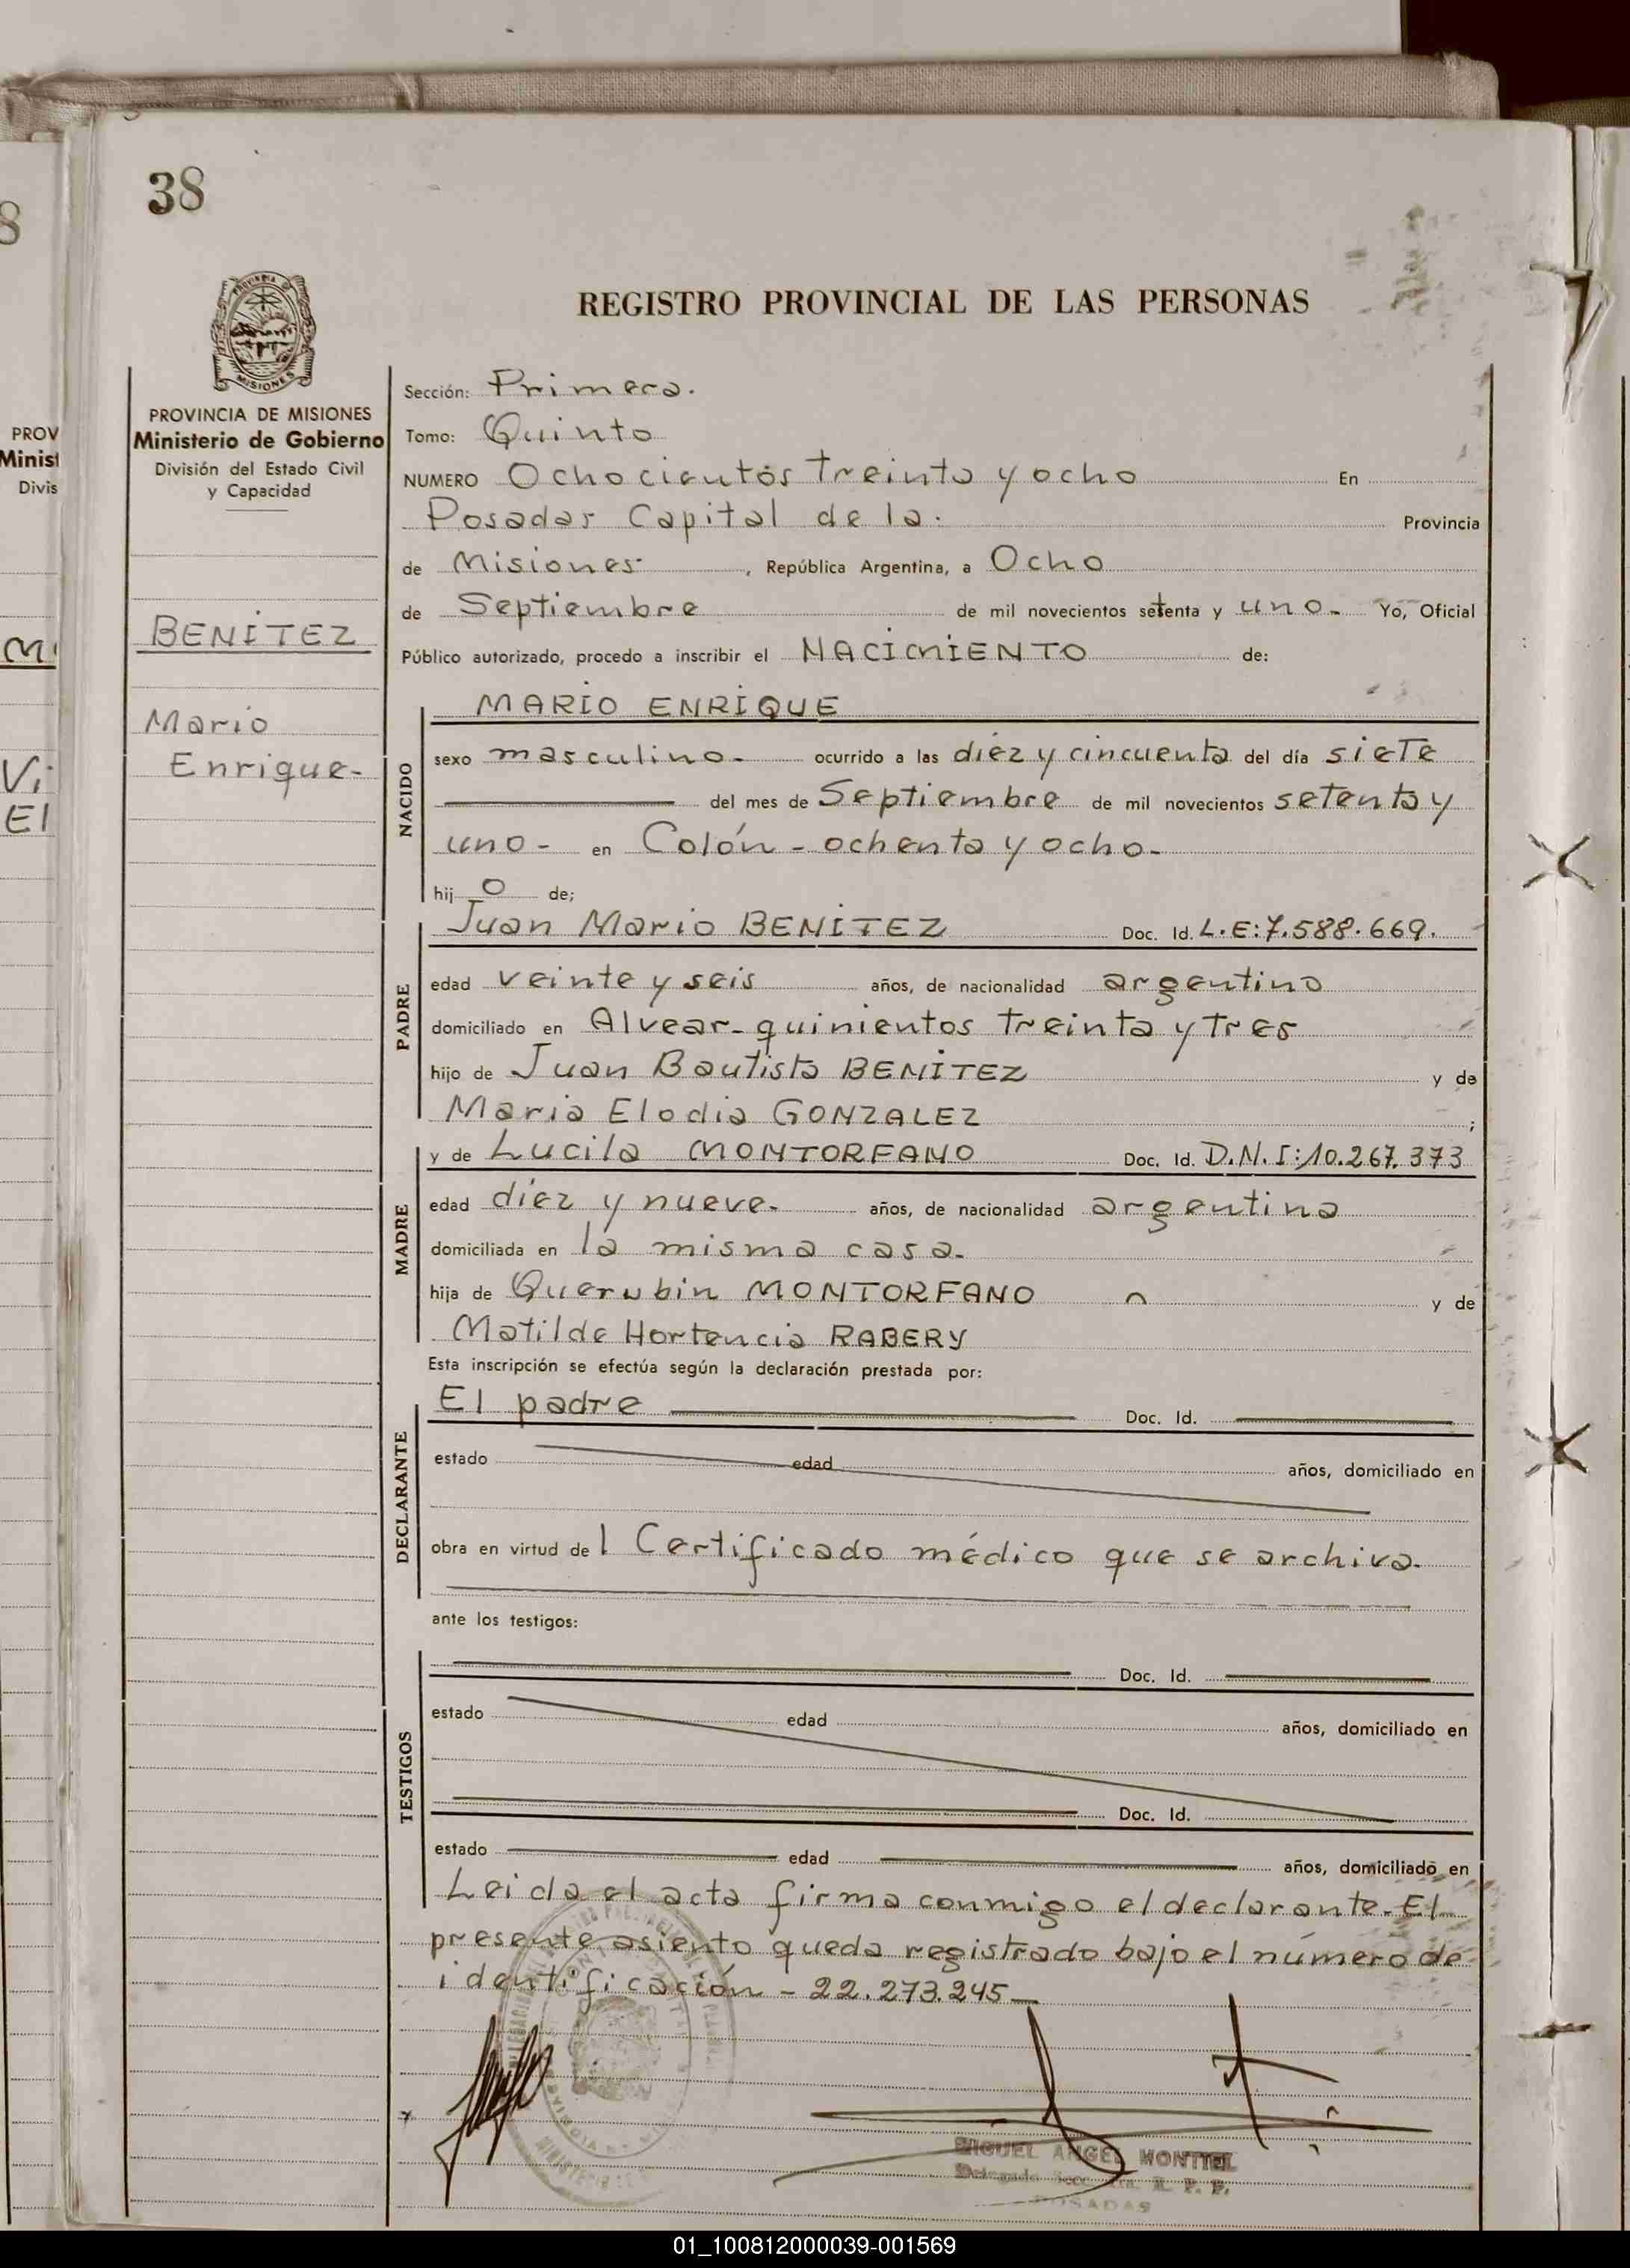 38
8
REGISTRO PROVINCIAL DE LAS PERSONAS
PROVINCIA
MISIONES
PROVINCIA DE MISIONES
Ministerio de Gobierno
División del Estado Civil
y Capacidad
PROV
Minist
Divis
BENITEZ
Mario
Enrique-
Vi
El
Sección: Primera.
Tomo: Quinto
NUMERO Ochocientos treinta y ocho En
Posadas Capital de la. Provincia
de Misiones , República Argentina, a Ocho
de Septiembre de mil novecientos setenta y uno- Yo, Oficial
Público autorizado, procedo a inscribir el NACIMIENTO de:
NACIDO
MARIO ENRIQUE
sexo masculino- ocurrido a las diez y cincuenta del día siete
del mes de Septiembre de mil novecientos setenta y
uno- en Colón - ochenta y ocho-
hij o de;
PADRE
Juan Mario BENITEZ Doc. Id. L.E:7.588.669.
edad veinte y seis años, de nacionalidad argentino
domiciliado en Alvear- quinientos treinta y tres
hijo de Juan Bautista BENITEZ y de
Maria Elodia GONZALEZ ;
MADRE
y de Lucila MONTORFANO Doc. Id. D.N.I:10.267.373
edad diez y nueve- años, de nacionalidad argentina
domiciliada en la misma casa-
hija de Querubin MONTORFANO y de
Matilde Hortencia RABERY
Esta inscripción se efectúa según la declaración prestada por:
DECLARANTE
El padre Doc. Id.
estado edad años, domiciliado en
obra en virtud de l Certificado médico que se archiva-
ante los testigos:
TESTIGOS
Doc. Id.
estado edad años, domiciliado en
Doc. Id.
estado edad años, domiciliado en
Leida el acta firma conmigo el declarante- El
presente asiento queda registrado bajo el número de
identificación - 22.273.245-
MIGUEL ANGEL MONTIEL
R. P. P.
POSADAS
01_100812000039-001569